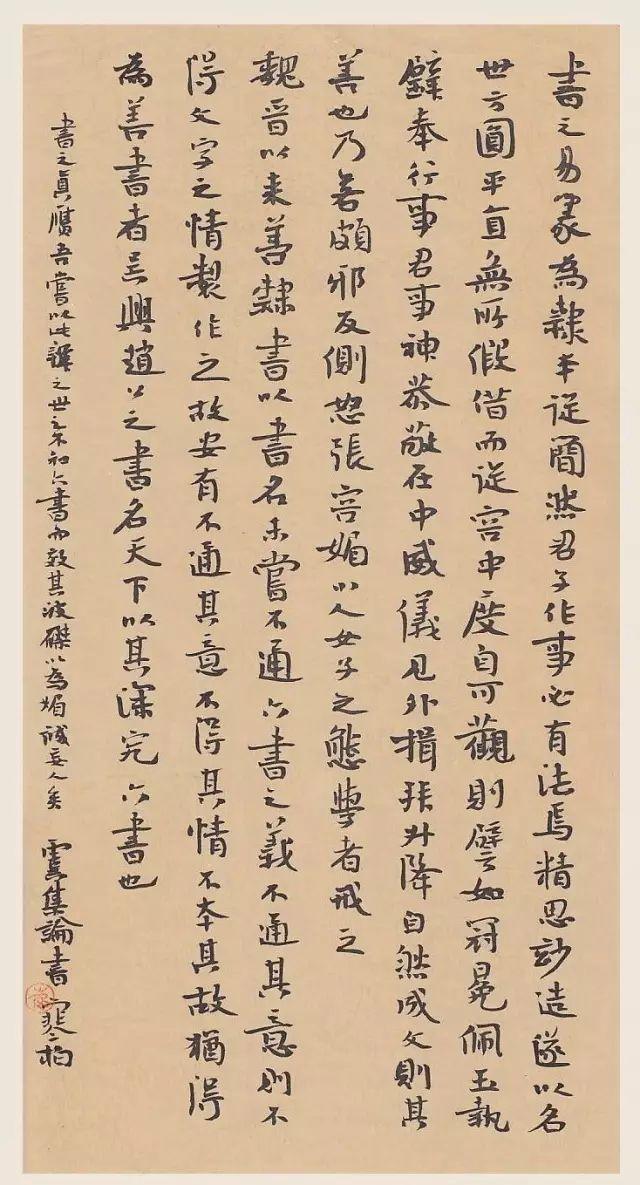 書之易篆為隸本從簡然君子作事必有法焉精思妙造遂以名
世方圓平直無所假借而從容中度自可觀則譬如冠冕佩玉執
璧奉行事君事神恭敬在中威儀見外揖拜升降自然成文則其
善也乃若頗邪反側怒張容媚小人女子之態學者戒之
魏晉以來善隸書以書名未嘗不通六書之義不通其意則不
得文字之情製作之故安有不通其意不得其情不本其故猶得
為善書者吳興趙公之書名天下以其深究六書也
書之真贋吾嘗以此之世之不知六書而效其波磔以為媚誠妄人矣 虞集論書